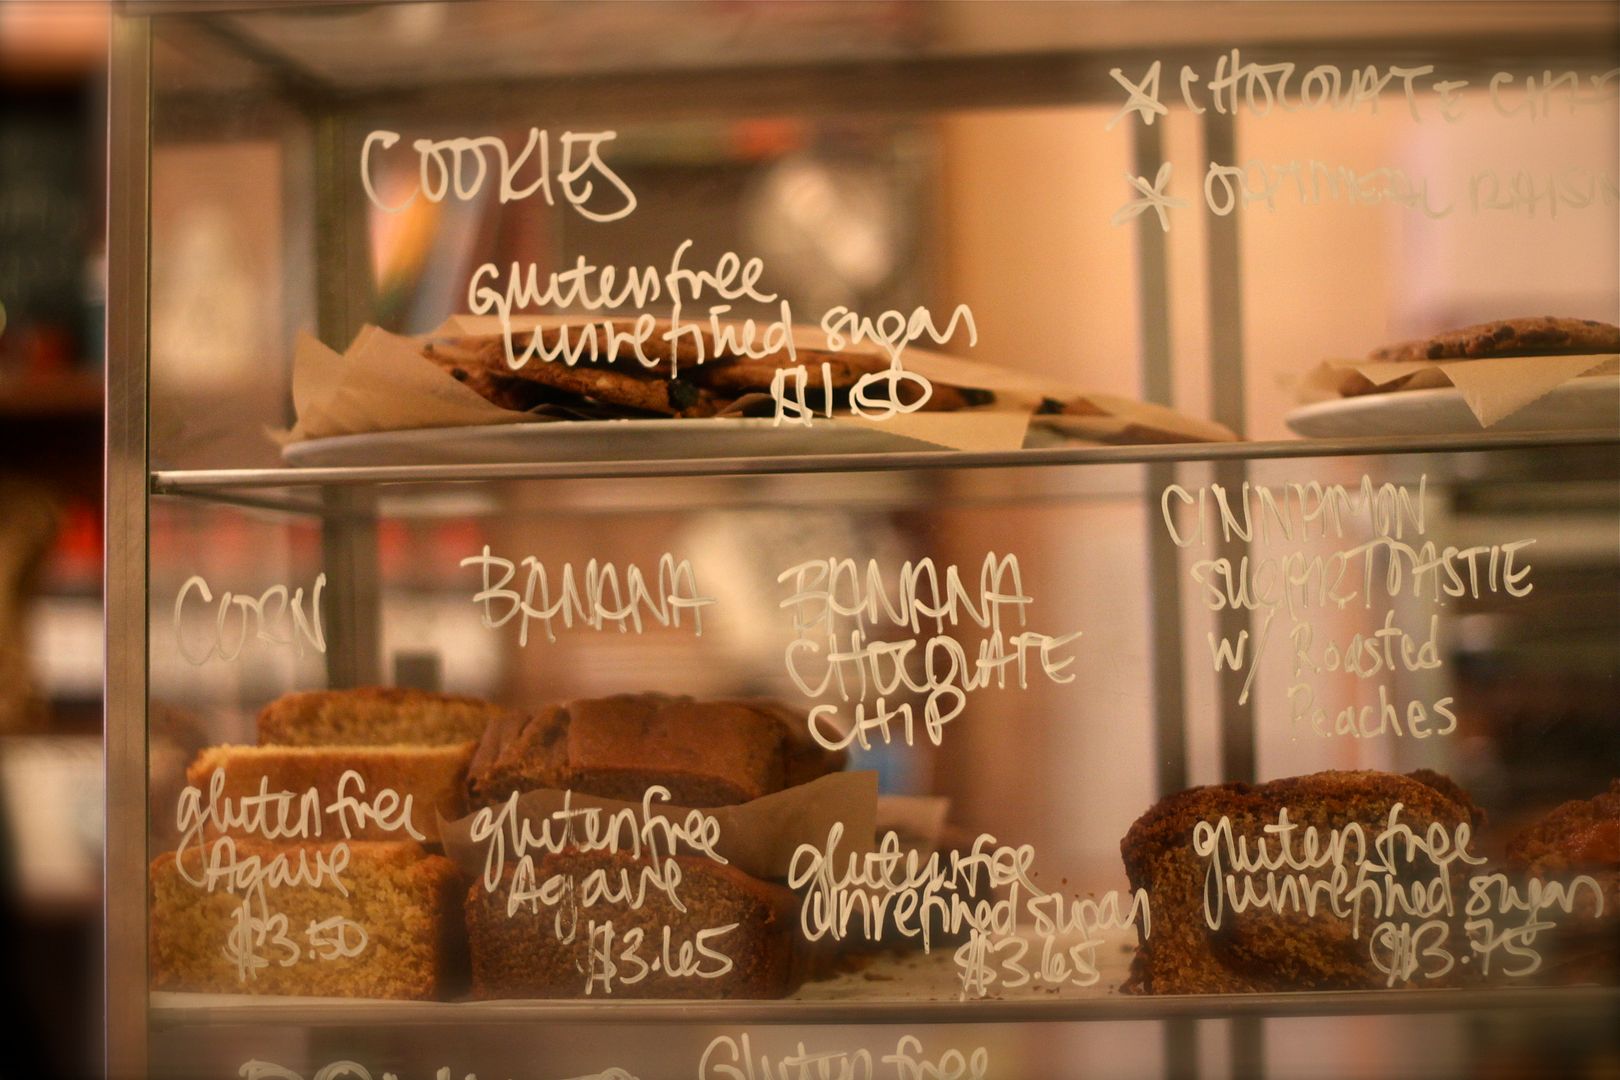 COOKIES
glutenfree
unrefined sugar
$1.50
* CHOCOLATE CHIP
* OATMEAL RAISIN
CORN
glutenfree
Agave
$3.50
BANANA
glutenfree
Agave
$3.65
BANANA
CHOCOLATE
CHIP
glutenfree
unrefined sugar
$3.65
CINNAMON
SUGAR TOASTIE
w/ Roasted
Peaches
glutenfree
unrefined sugar
$3.75
Gluten free